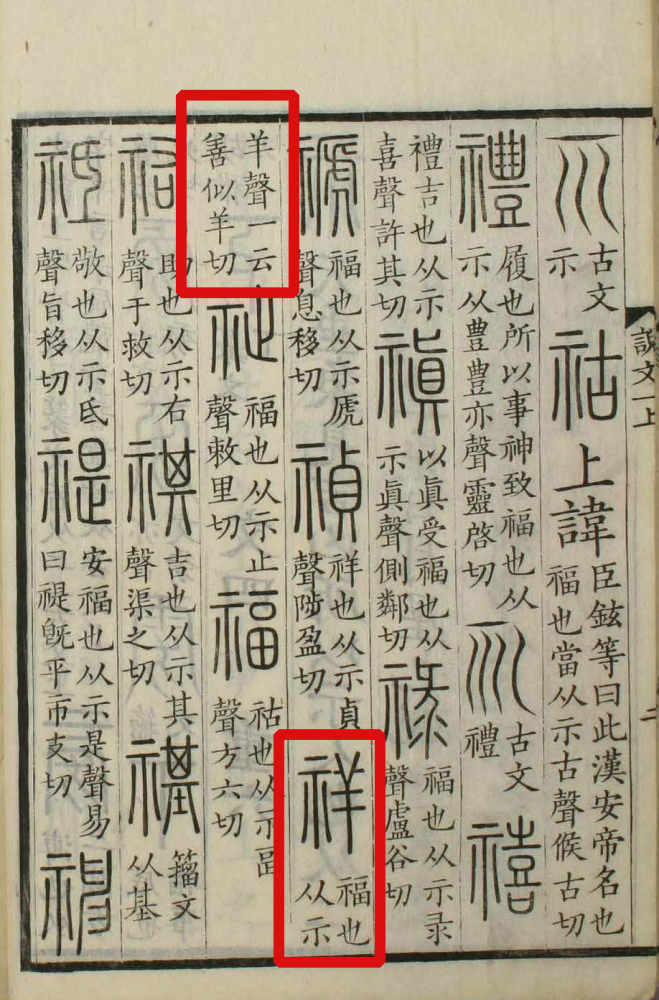 說文一上
二
古文示祜上諱臣鉉等曰此漢安帝名也福也當从示古聲候古切
禮履也所以事神致福也从示从豊豊亦聲靈啓切古文禮禧
禮吉也从示喜聲許其切禛以眞受福也从示眞聲側鄰切祿福也从示录聲盧谷切
禠福也从示虒聲息移切禎祥也从示貞聲陟盈切祥福也从示
羊聲一云善似羊切祉福也从示止聲敕里切福祜也从示畐聲方六切
祐助也从示右聲于救切祺吉也从示其聲渠之切禥籒文从基
祗敬也从示氐聲旨移切禔安福也从示是聲易曰禔旣平市支切神